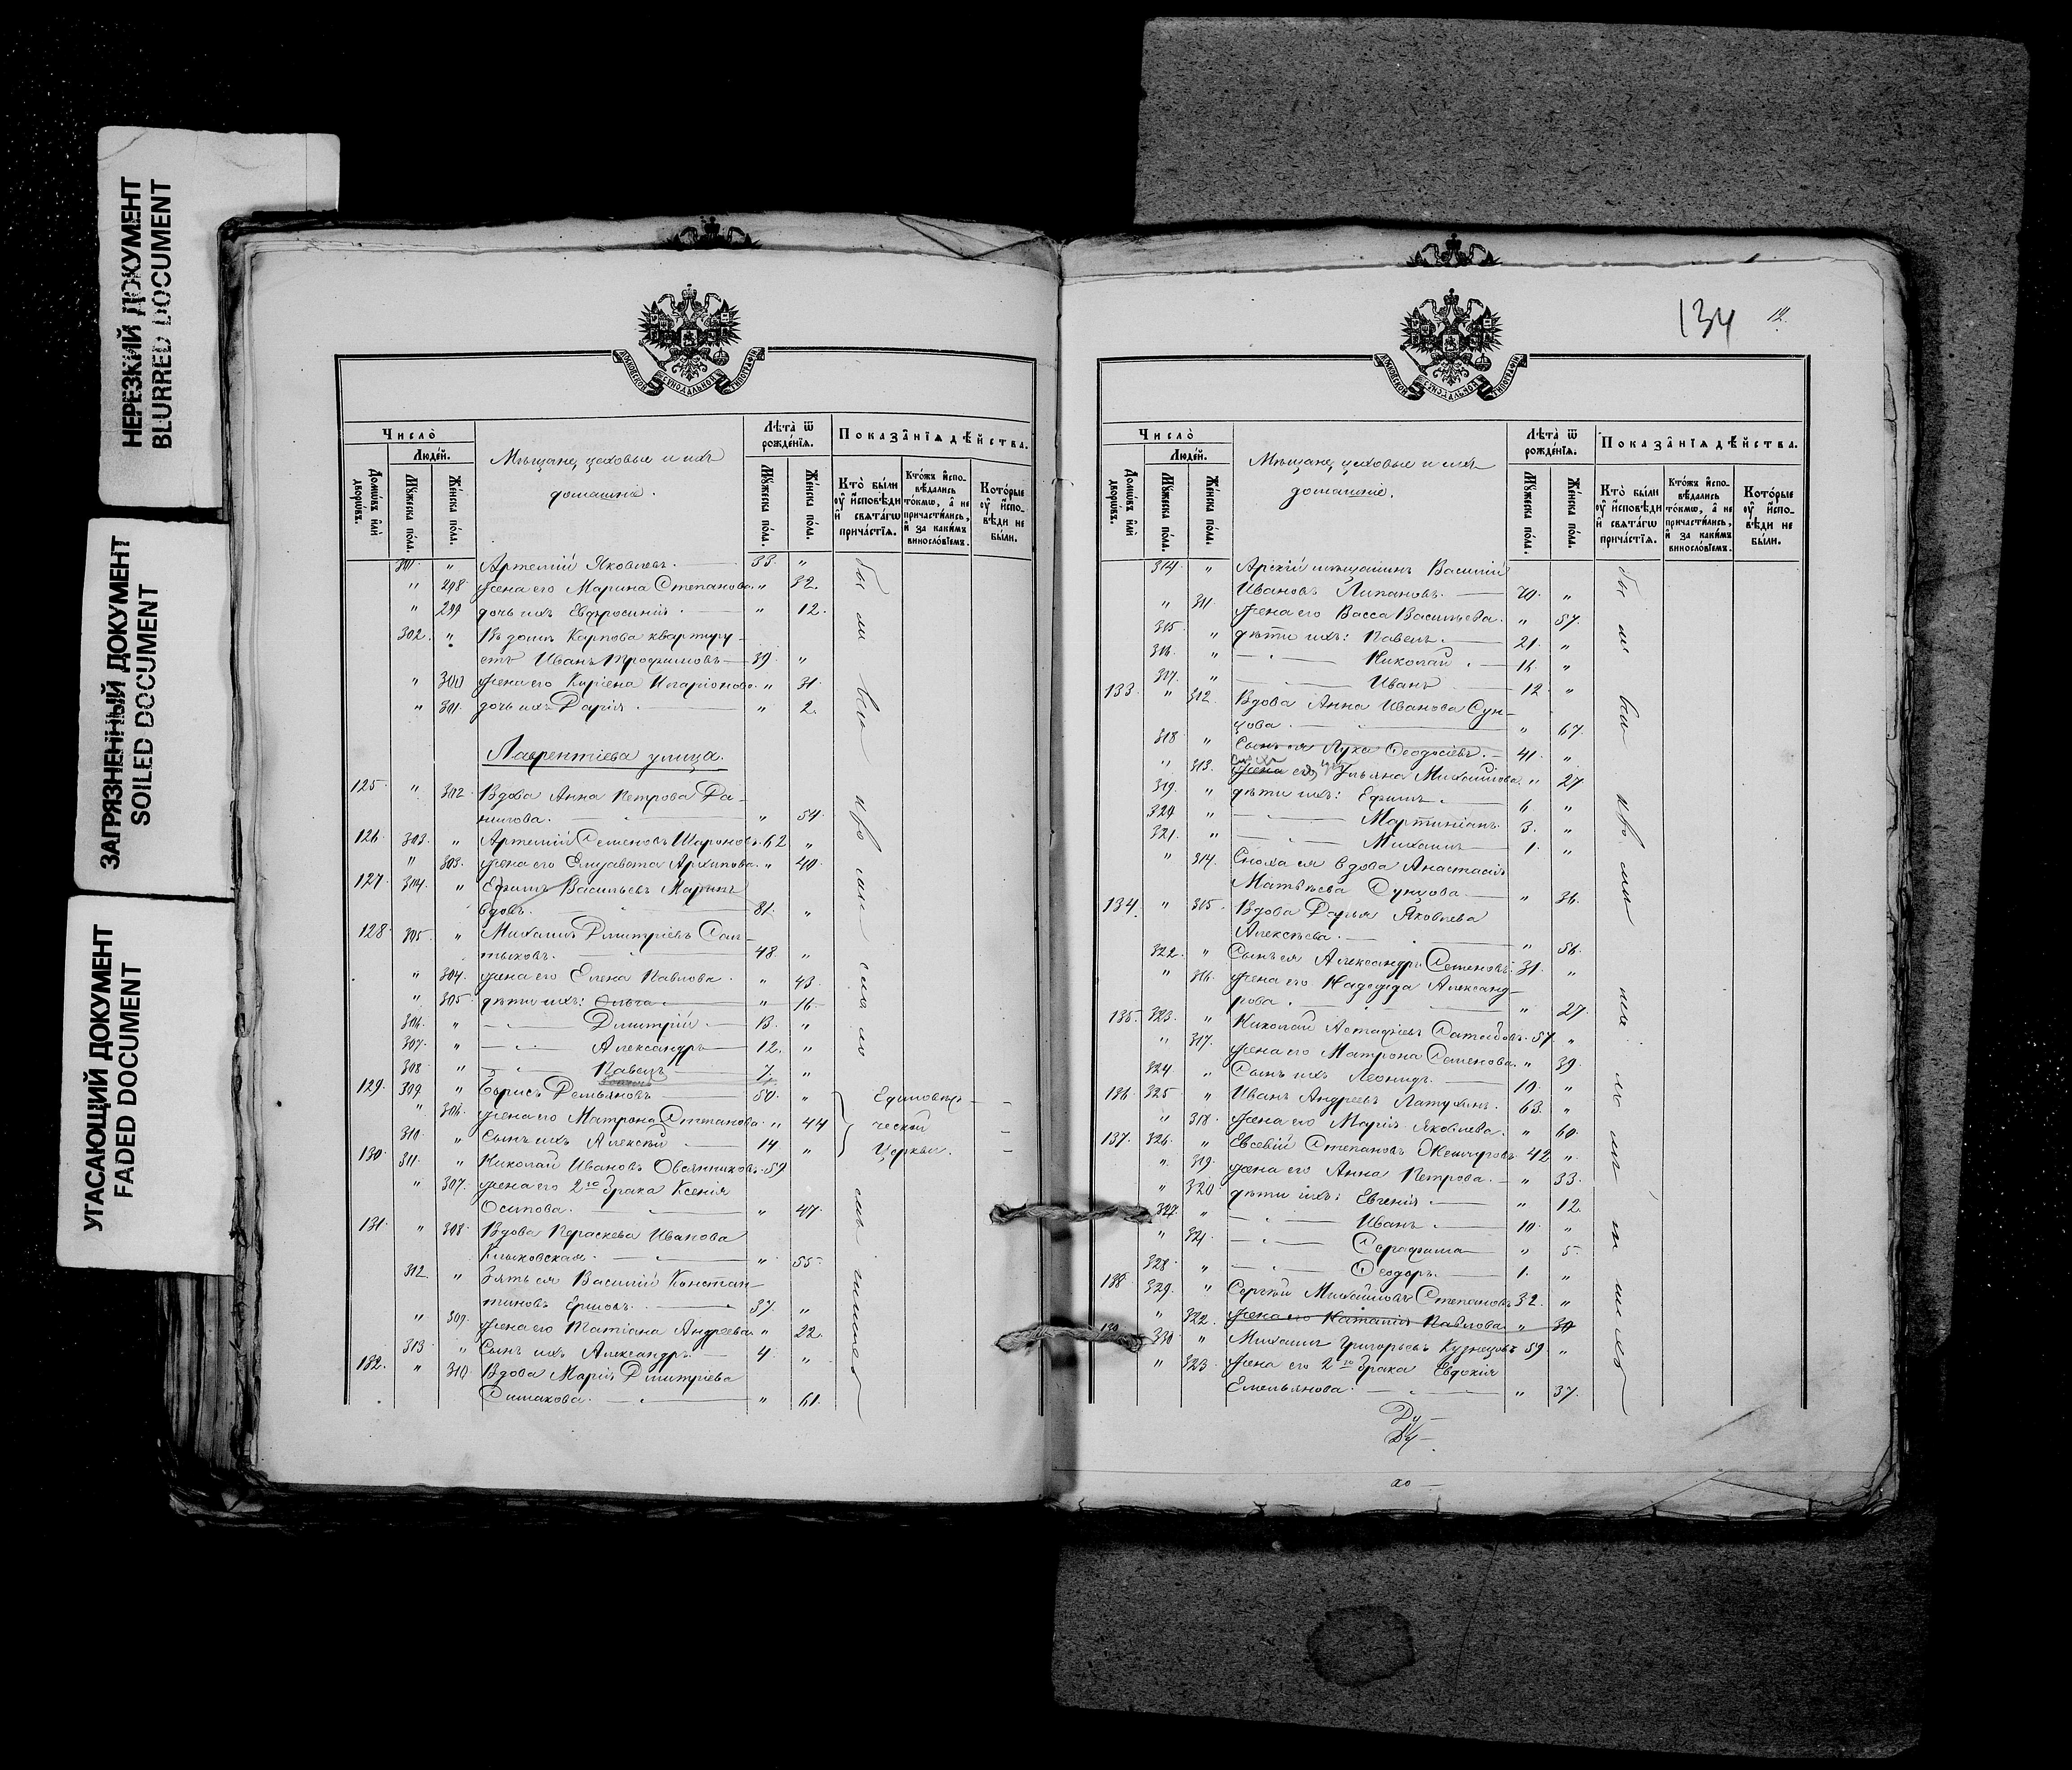 НЕРЕЗКИЙ ДОКУМЕНТ
BLURRED DOCUMENT
ЗАГРЯЗНЕННЫЙ ДОКУМЕНТ
SOILED DOCUMENT
УГАСАЮЩИЙ ДОКУМЕНТ
FADED DOCUMENT
МОСКОВСКОЙ СѴНОДАЛЬНОЙ ТИПОГРАФІИ
Число̀
Люде́й.
Домѡ́въ и҆лѝ дворѡ́въ.
Мꙋ́жеска по́ла.
Же́нска по́ла.
Мѣщане, цеховые и ихъ
домашніе.
Лѣ́та ѿ рожде́нїѧ.
Мꙋ́жеска по́ла.
Же́нска по́ла.
Показа̑нїѧ дѣ́йства.
Кто̀ бы́ли ᲂу҆ и҆сповѣ́ди и҆ свѧта́гѡ прича́стїѧ.
Кто́жъ и҆сповѣ́дались то́кмѡ, а҆ не причасти́лись, и҆ за каки́мъ винословїемъ.
Кото́рые ᲂу҆ и҆сповѣ́ди не бы́ли.
301. " Артемій Яковлевъ. 33. "
" 298. жена его Марина Степанова. " 32.
" 299. дочь ихъ Евфросинія. " 12.
302. " Въ домѣ Карпова квартиру-
етъ Иванъ Трофимовъ 39. "
" 300 жена его Киріена Иларіонова. " 31.
" 301. дочь ихъ Дарія. " 2.
Лаврентіева улица.
125. " 302. Вдова Анна Петрова Да-
нилова. " 54.
126. 303. " Артемій Семеновъ Шароновъ. 62 "
" 303. жена его Елизавета Архипова. " 40.
127. 304. " Ефимъ Васильевъ Марынъ
вдовъ. 81. "
128. 305. " Михаилъ Дмитріевъ Сал-
тыковъ. 48. "
" 304. жена его Елена Павлова. " 43.
" 305. дѣти ихъ: Ольга. " 16.
306. " Дмитрій. 13. "
307. " Александръ 12. "
308. " Павелъ 7. "
129. 309. " Борисъ Демьяновъ 50. " Единовѣр-
" 306. жена его Матрона Степанова. " 44 ческой
310. " Сынъ ихъ Алексѣй 14 " Церкви.
130. 311. " Николай Ивановъ Овсянниковъ. 59
" 307. жена его 2го брака Ксенія
Осипова. " 47.
131. " 308. Вдова Параскева Иванова
Клыковская. " 55.
312. " Зять ея Василій Констан-
тиновъ Ершовъ. 37. "
" 309. жена его Татіана Андреева. " 22.
313. " Сынъ ихъ Александръ. 4. "
132. " 310. Вдова Марія Дмитріева
Симакова. " 61.
134 12.
МОСКОВСКОЙ СѴНОДАЛЬНОЙ ТИПОГРАФІИ
Число̀
Люде́й.
Домѡ́въ и҆лѝ дворѡ́въ.
Мꙋ́жеска по́ла.
Же́нска по́ла.
Мѣщане, цеховые и ихъ
домашніе.
Лѣ́та ѿ рожде́нїѧ.
Мꙋ́жеска по́ла.
Же́нска по́ла.
Показа̑нїѧ дѣ́йства.
Кто̀ бы́ли ᲂу҆ и҆сповѣ́ди и҆ свѧта́гѡ прича́стїѧ.
Кто́жъ и҆сповѣ́дались то́кмѡ, а҆ не причасти́лись, и҆ за каки́мъ винословїемъ.
Кото́рые ᲂу҆ и҆сповѣ́ди не бы́ли.
314. " Арскій мѣщанинъ Василій
Ивановъ Липановъ. 70. "
" 311. жена его Васса Васильева. " 57.
315. " дѣти ихъ: Павелъ. 21. "
316. " Николай. 16. "
317. " Иванъ 12 "
133. " 312. Вдова Анна Иванова Сун-
цова. " 67.
318 " Сынъ ея Лука Ѳеодосіевъ. 41. "
" 313. жена его Ульяна Михайлова. " 27
319. " дѣти ихъ: Ефимъ. 6. "
320 " Мартиніанъ. 3. "
321. " Михаилъ 1. "
" 314. Сноха ея вдова Анастасія
Матвѣева Сунцова. " 36.
134. " 315. Вдова Дарья Яковлева
Алексѣева. " 56.
322. " Сынъ ея Александръ Семеновъ. 31. "
" 316. жена его Надежда Александ-
рова. " 27.
135. 323. " Николай Астафіевъ 57. "
" 317. жена его Матрона Семенова. " 39.
324 " Сынъ ихъ Леонидъ. 10. "
136. 325 " Иванъ Андреевъ Латухинъ. 63. "
" 318. жена его Марія Яковлева. " 60.
137. 326. " Евсевій Степановъ Жемчуровъ 42 "
" 319. жена его Анна Петрова. " 33.
" 320. дѣти ихъ: Евгенія. " 12.
327. " Иванъ. 10. "
" 321. Серафима " 5.
328. " Ѳеодоръ. 1. "
138. 329. " Сергѣй Михайловъ Степановъ 32. "
" 322. жена его Наталія Павлова. " 30
139. 330. " Михаилъ Григорьевъ Кузнецовъ 59. "
" 323. жена его 2го брака Евдокія
Емельянова. " 37.
Ду-
хо-